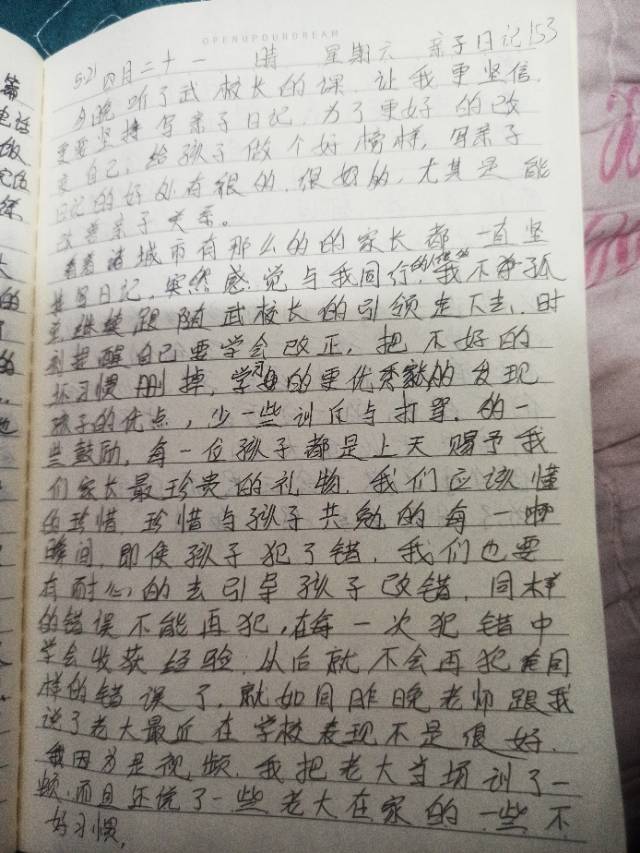 OPENUPOURDREAM
5.21 四月二十一 晴 星期六 亲子日记153
今晚听了武校长的课,让我更坚信,
更要坚持写亲子日记,为了更好的改
变自己,给孩子做个好榜样,写亲子
日记的好处有很多的,很好的,尤其是能
改善亲子关系。
看着诸城市有那么的的家长都一直坚
持写日记,突然感觉与我同行的,我不孤
继续跟随武校长的引领走下去,时
刻提醒自己要学会改正,把不好的
坏习惯删掉,学习的更优秀的发现
孩子的优点,少一些训斥与打骂,的一
些鼓励,每一位孩子都是上天赐予我
们家长最珍贵的礼物,我们应该懂
的珍惜,珍惜与孩子共勉的每一
瞬间,即使孩子犯了错,我们也要
有耐心的去引导孩子改错,同样
的错误不能再犯,在每一次犯错中
学会收获经验,从后就不会再犯同
样的错误了,就如同昨晚老师跟我
说了老大最近在学校表现不是很好,
我因为是视频,我把老大当场训了一
顿,而且还说了一些老大在家的一些不
好习惯,
篇
电话
做
大
的
了
的